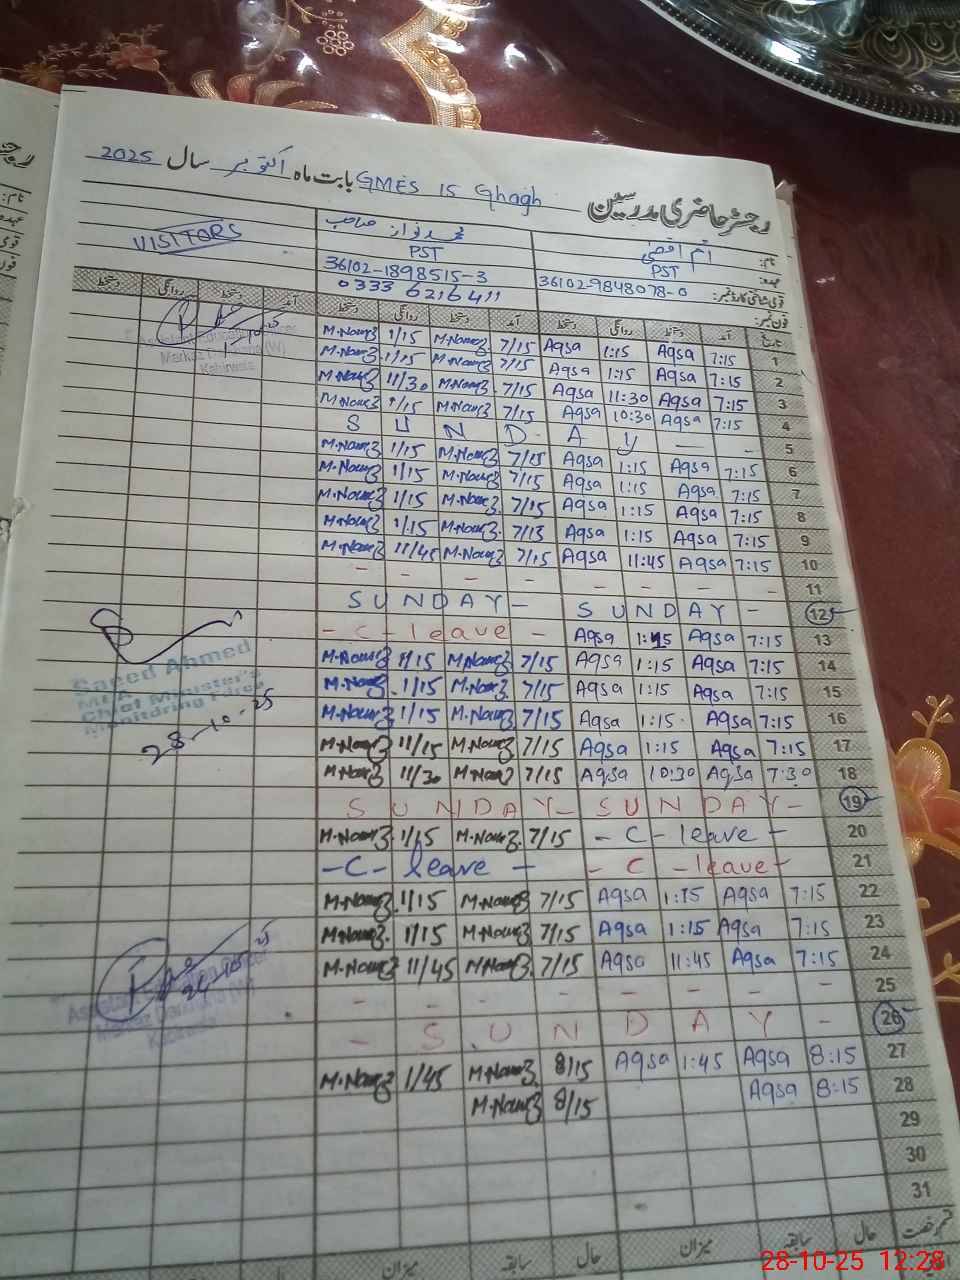 رجسٹر حاضری مدرسین GMES 15 Ghagh بابت ماہ اکتوبر سال 2025
نام: محمد نواز صاحب VISITORS
عہدہ: PST PST
قومی شناختی کارڈ نمبر: 36102-9848078-0 36102-1898515-3
فون نمبر: 0333 6216411
تاریخ آمد دستخط روانگی دستخط آمد دستخط روانگی دستخط آمد دستخط روانگی دستخط
1 7:15 Aqsa 1:15 Aqsa 7/15 M.Nawaz 1/15 M.Nawaz
2 7:15 Aqsa 1:15 Aqsa 7/15 M.Nawaz 1/15 M.Nawaz
3 7:15 Aqsa 11:30 Aqsa 7/15 M.Nawaz 11/30 M.Nawaz
4 7:15 Aqsa 10:30 Aqsa 7/15 M.Nawaz 1/15 M.Nawaz
5 S U N D A Y — -
6 7:15 Aqsa 1:15 Aqsa 7/15 M.Nawaz 1/15 M.Nawaz
7 7:15 Aqsa 1:15 Aqsa 7/15 M.Nawaz 1/15 M.Nawaz
8 7:15 Aqsa 1:15 Aqsa 7/15 M.Nawaz 1/15 M.Nawaz
9 7:15 Aqsa 1:15 Aqsa 7/15 M.Nawaz 1/15 M.Nawaz
10 7:15 Aqsa 11:45 Aqsa 7/15 M.Nawaz 11/45 M.Nawaz
11 - - - - - - - -
12 SUNDAY - SUNDAY -
13 7:15 Aqsa 1:15 Aqsa - C - leave -
14 7:15 Aqsa 1:15 Aqsa 7/15 M.Nawaz 1/15 M.Nawaz
15 7:15 Aqsa 1:15 Aqsa 7/15 M.Nawaz 1/15 M.Nawaz
16 7:15 Aqsa 1:15 Aqsa 7/15 M.Nawaz 1/15 M.Nawaz
17 7:15 Aqsa 1:15 Aqsa 7/15 M.Nawaz 11/15 M.Nawaz
18 7:30 Aqsa 10:30 Aqsa 7/15 M.Nawaz 11/30 M.Nawaz
19 SUNDAY - SUNDAY -
20 - C - leave - 7/15 M.Nawaz 1/15 M.Nawaz
21 - C - leave - - C - leave -
22 7:15 Aqsa 1:15 Aqsa 7/15 M.Nawaz 1/15 M.Nawaz
23 7:15 Aqsa 1:15 Aqsa 7/15 M.Nawaz 1/15 M.Nawaz
24 7:15 Aqsa 11:45 Aqsa 7/15 M.Nawaz 11/45 M.Nawaz
25 - - - - - - - -
26 - S U N D A Y -
27 8:15 Aqsa 1:45 Aqsa 8/15 M.Nawaz 1/45 M.Nawaz
28 8:15 Aqsa 8/15 M.Nawaz
29
30
31
قسم رخصت حال سابقہ میزان حال سابقہ میزان
Assistant Education Officer
Kabirwala
Saeed Ahmed
MEA
Chief Minister's
Monitoring Force
28-10-25
Assistant Education Officer
24-10-25
Kabirwala
28-10-25 12:28